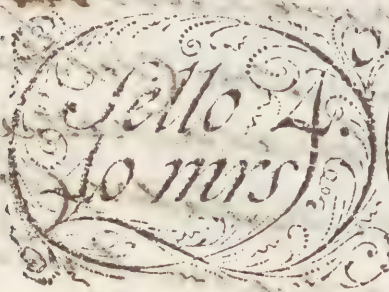 Sello 4.
40 mrs